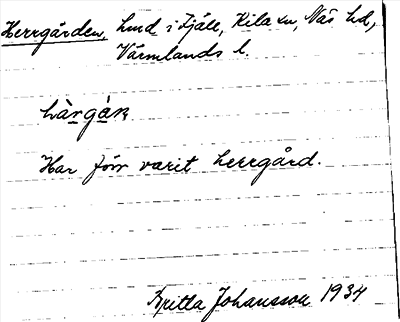 Herrgården, hmd i Fjäll, Kila sn, Näs hd,
Värmlands l.
hàrgàṇ
Har förr varit herrgård.
Britta Johansson 1934